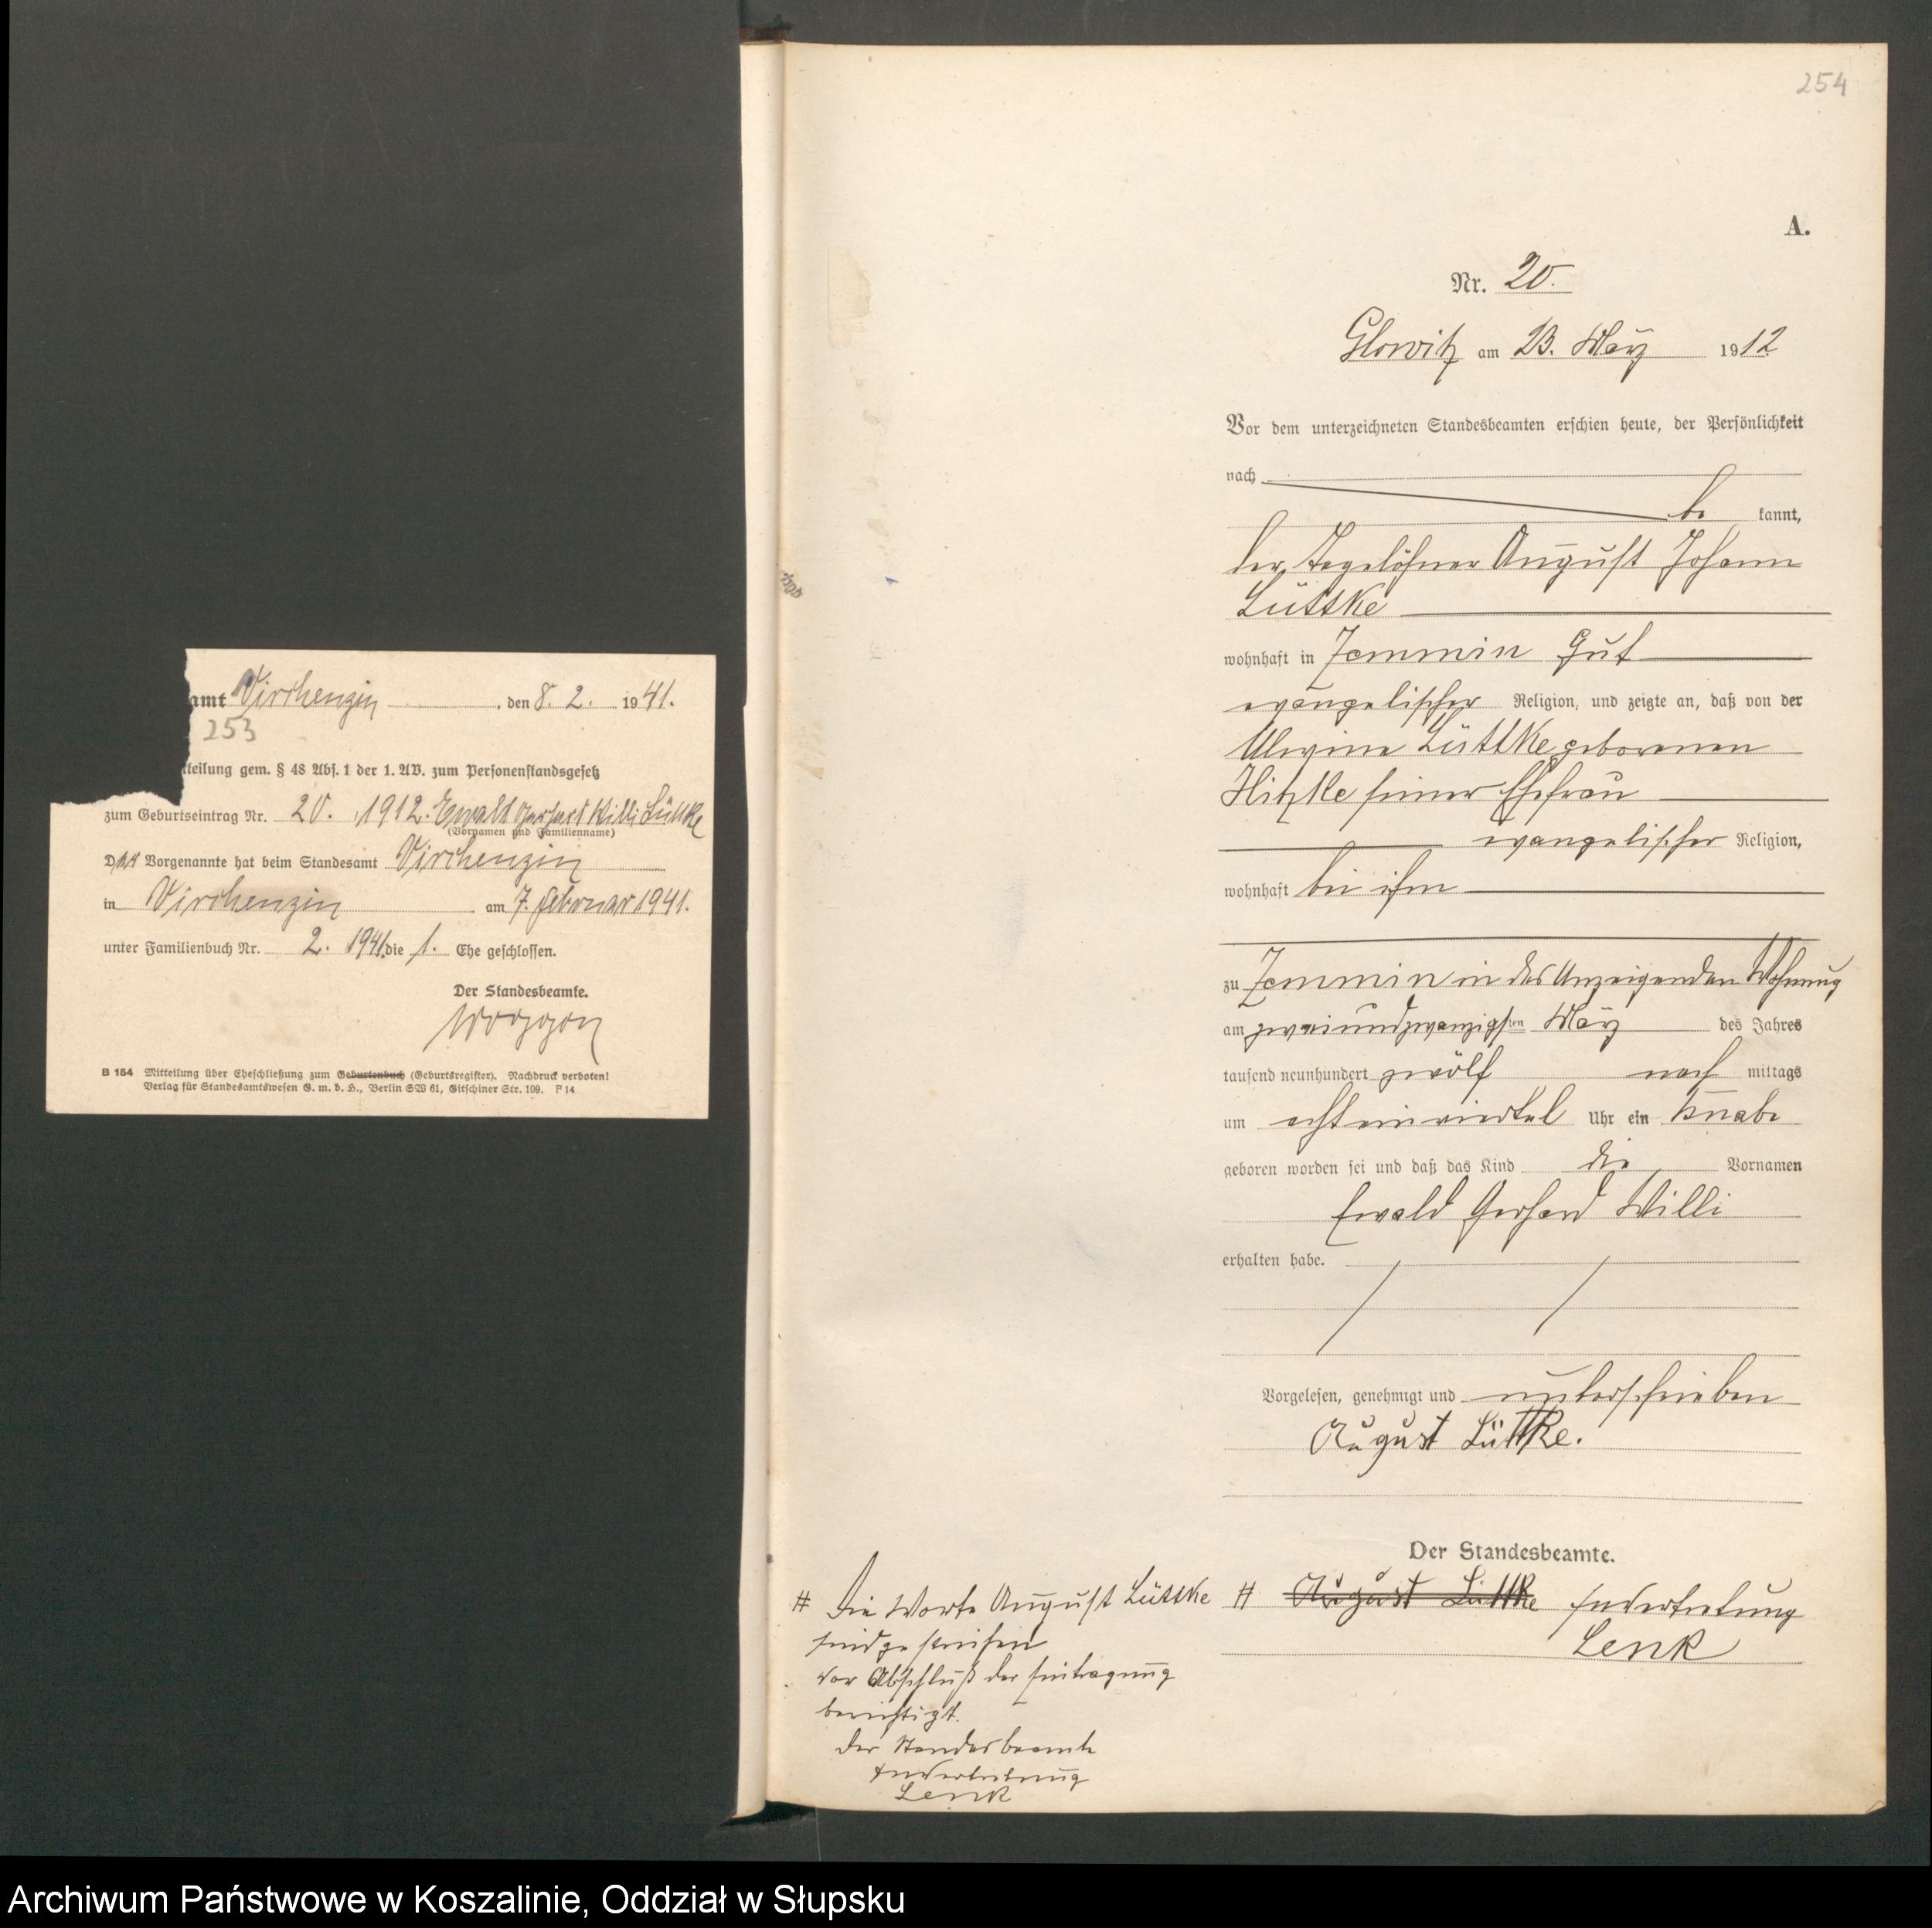 amt Virchenzin, den 8. 2. 1941.
253
teilung gem. § 48 Abs. 1 der 1. AV. zum Personenstandsgesetz
zum Geburtseintrag Nr. 20. 1912. Ewald Gerhard Willi Lüttke
(Vornamen und Familienname)
Der Vorgenannte hat beim Standesamt Virchenzin
in Virchenzin am 7. Februar 1941.
unter Familienbuch Nr. 2. 1941. die 1. Ehe geschlossen.
Der Standesbeamte.
B 154 Mitteilung über Eheschließung zum Geburtenbuch (Geburtsregister). Nachdruck verboten!
Verlag für Standesamtswesen G. m. b. H., Berlin SW 61, Gitschiner Str. 109. F 14
254
A.
Nr. 20.
Glowitz am 23. März 1912
Vor dem unterzeichneten Standesbeamten erschien heute, der Persönlichkeit
nach
be kannt,
der Tagelöhner August Johann
Lüttke
wohnhaft in Zemmin Gut
evangelischer Religion, und zeigte an, daß von der
Alwine Lüttke geborenen
Hitzke seiner Ehefrau
evangelischer Religion,
wohnhaft bei ihm
zu Zemmin in des Anzeigenden Wohnung
am zweiundzwanzigsten März des Jahres
tausend neunhundert zwölf nach mittags
um acht einviertel Uhr ein Knabe
geboren worden sei und daß das Kind die Vornamen
Ewald Gerhard Willi
erhalten habe.
Vorgelesen, genehmigt und unterschrieben
August Lüttke.
Der Standesbeamte.
# August Lüttke In Vertretung
Lenk
# Die Worte August Lüttke
sind gestrichen
Vor Abschluß der Eintragung
berichtigt.
Der Standesbeamte
In Vertretung
Lenk
Archiwum Państwowe w Koszalinie, Oddział w Słupsku